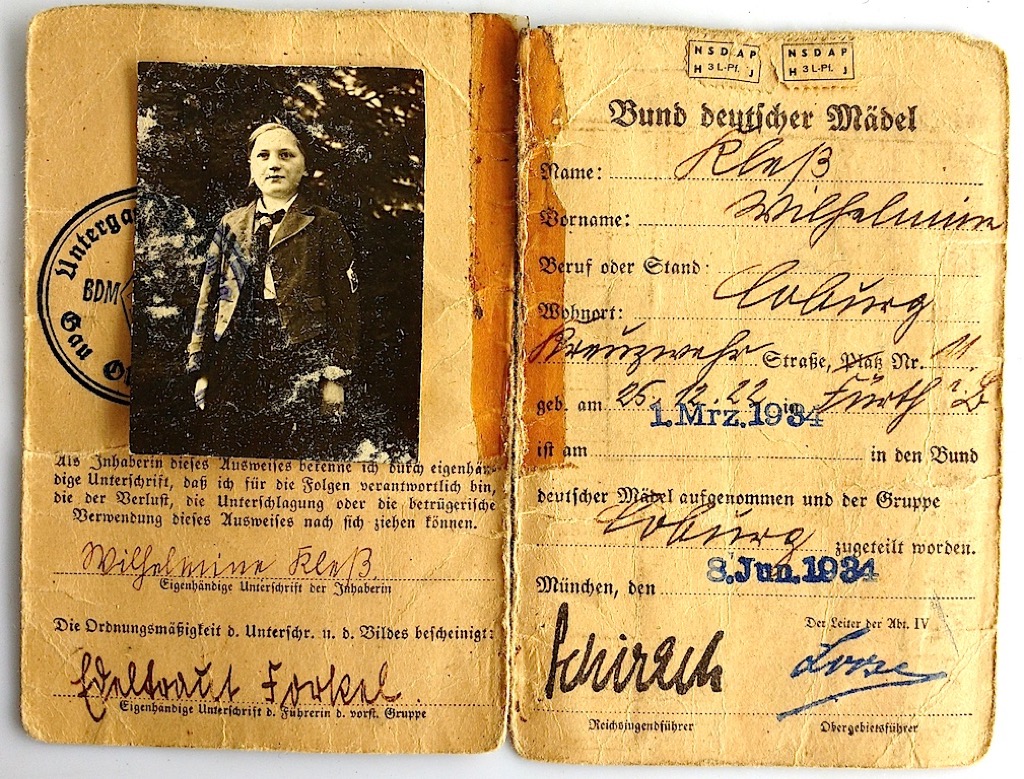 Untergau
BDM
Gau
Als Inhaberin dieses Ausweises bekenne ich durch eigenhän-
dige Unterschrift, daß ich für die Folgen verantwortlich bin,
die der Verlust, die Unterschlagung oder die betrügerische
Verwendung dieses Ausweises nach sich ziehen können.
Wilhelmine Kleß
Eigenhändige Unterschrift der Inhaberin
Die Ordnungsmäßigkeit d. Unterschr. u. d. Bildes bescheinigt:
Edeltraut Forkel.
Eigenhändige Unterschrift d. Führerin d. vorst. Gruppe
NSDAP NSDAP
H 3 L.-Pf. J H 3 L.-Pf. J
Bund deutscher Mädel
Name: Kleß
Vorname: Wilhelmine
Beruf oder Stand:
Wohnort: Coburg
Kreuzwehr Straße, Platz Nr. 11
geb. am 25.12.22 in Fürth i. B
1. Mrz. 1934
ist am in den Bund
deutscher Mädel aufgenommen und der Gruppe
Coburg zugeteilt worden.
München, den 8. Jun. 1934
Der Leiter der Abt. IV
Schirach
Reichsjugendführer Obergebietsführer